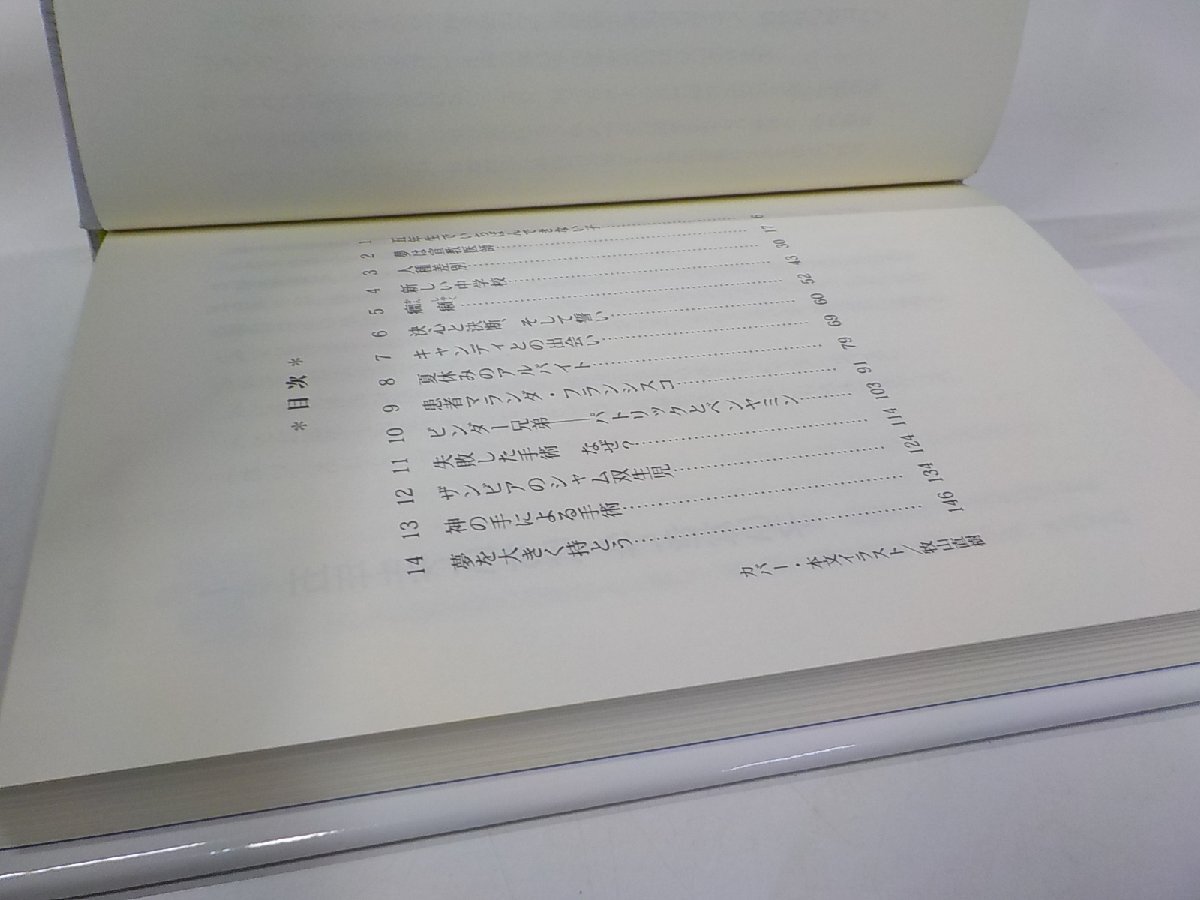 ＊目次＊
1 五年生でいちばんできない子 6
2 夢は宣教医師 17
3 人種差別 30
4 新しい中学校 43
5 癇癪 52
6 決心と決断、そして誓い 60
7 キャンディとの出会い 69
8 夏休みのアルバイト 79
9 患者マランダ・フランシスコ 91
10 ビンダー兄弟――パトリックとベンヤミン 103
11 失敗した手術 なぜ？ 114
12 ザンビアのシャム双生児 124
13 神の手による手術 134
14 夢を大きく持とう 146
カバー・本文イラスト／牧山直樹